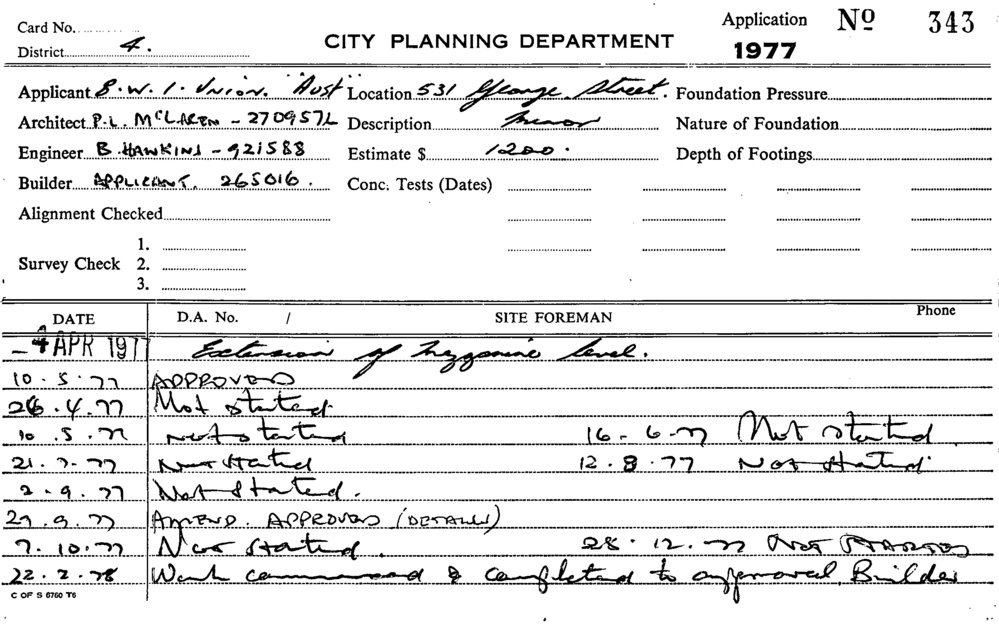 Card No. Application No 343
District 4. CITY PLANNING DEPARTMENT 1977
Applicant S.W.I. Union. "Aust" Location 531 George Street. Foundation Pressure
Architect P.L. McLAREN - 2709572 Description Minor Nature of Foundation
Engineer B. HAWKINS - 921588 Estimate $ 1200. Depth of Footings
Builder APPLICANT. 265016. Conc. Tests (Dates)
Alignment Checked
1.
Survey Check 2.
3.
DATE D.A. No. / SITE FOREMAN Phone
- 4 APR 197 Extension of Mezzanine Level.
10.5.77 APPROVED
26.4.77 Not started
10.5.77 Not started 16-6-77 Not started.
21.7.77 Not started 12.8.77 Not started
2.9.77 Not Started.
29.9.77 AMEND. APPROVED (DETAILS)
7.10.77 Not started. 28.12.77 NOT STARTED
22.2.78 Work commenced & completed to approval Builder
C OF S 6760 T6